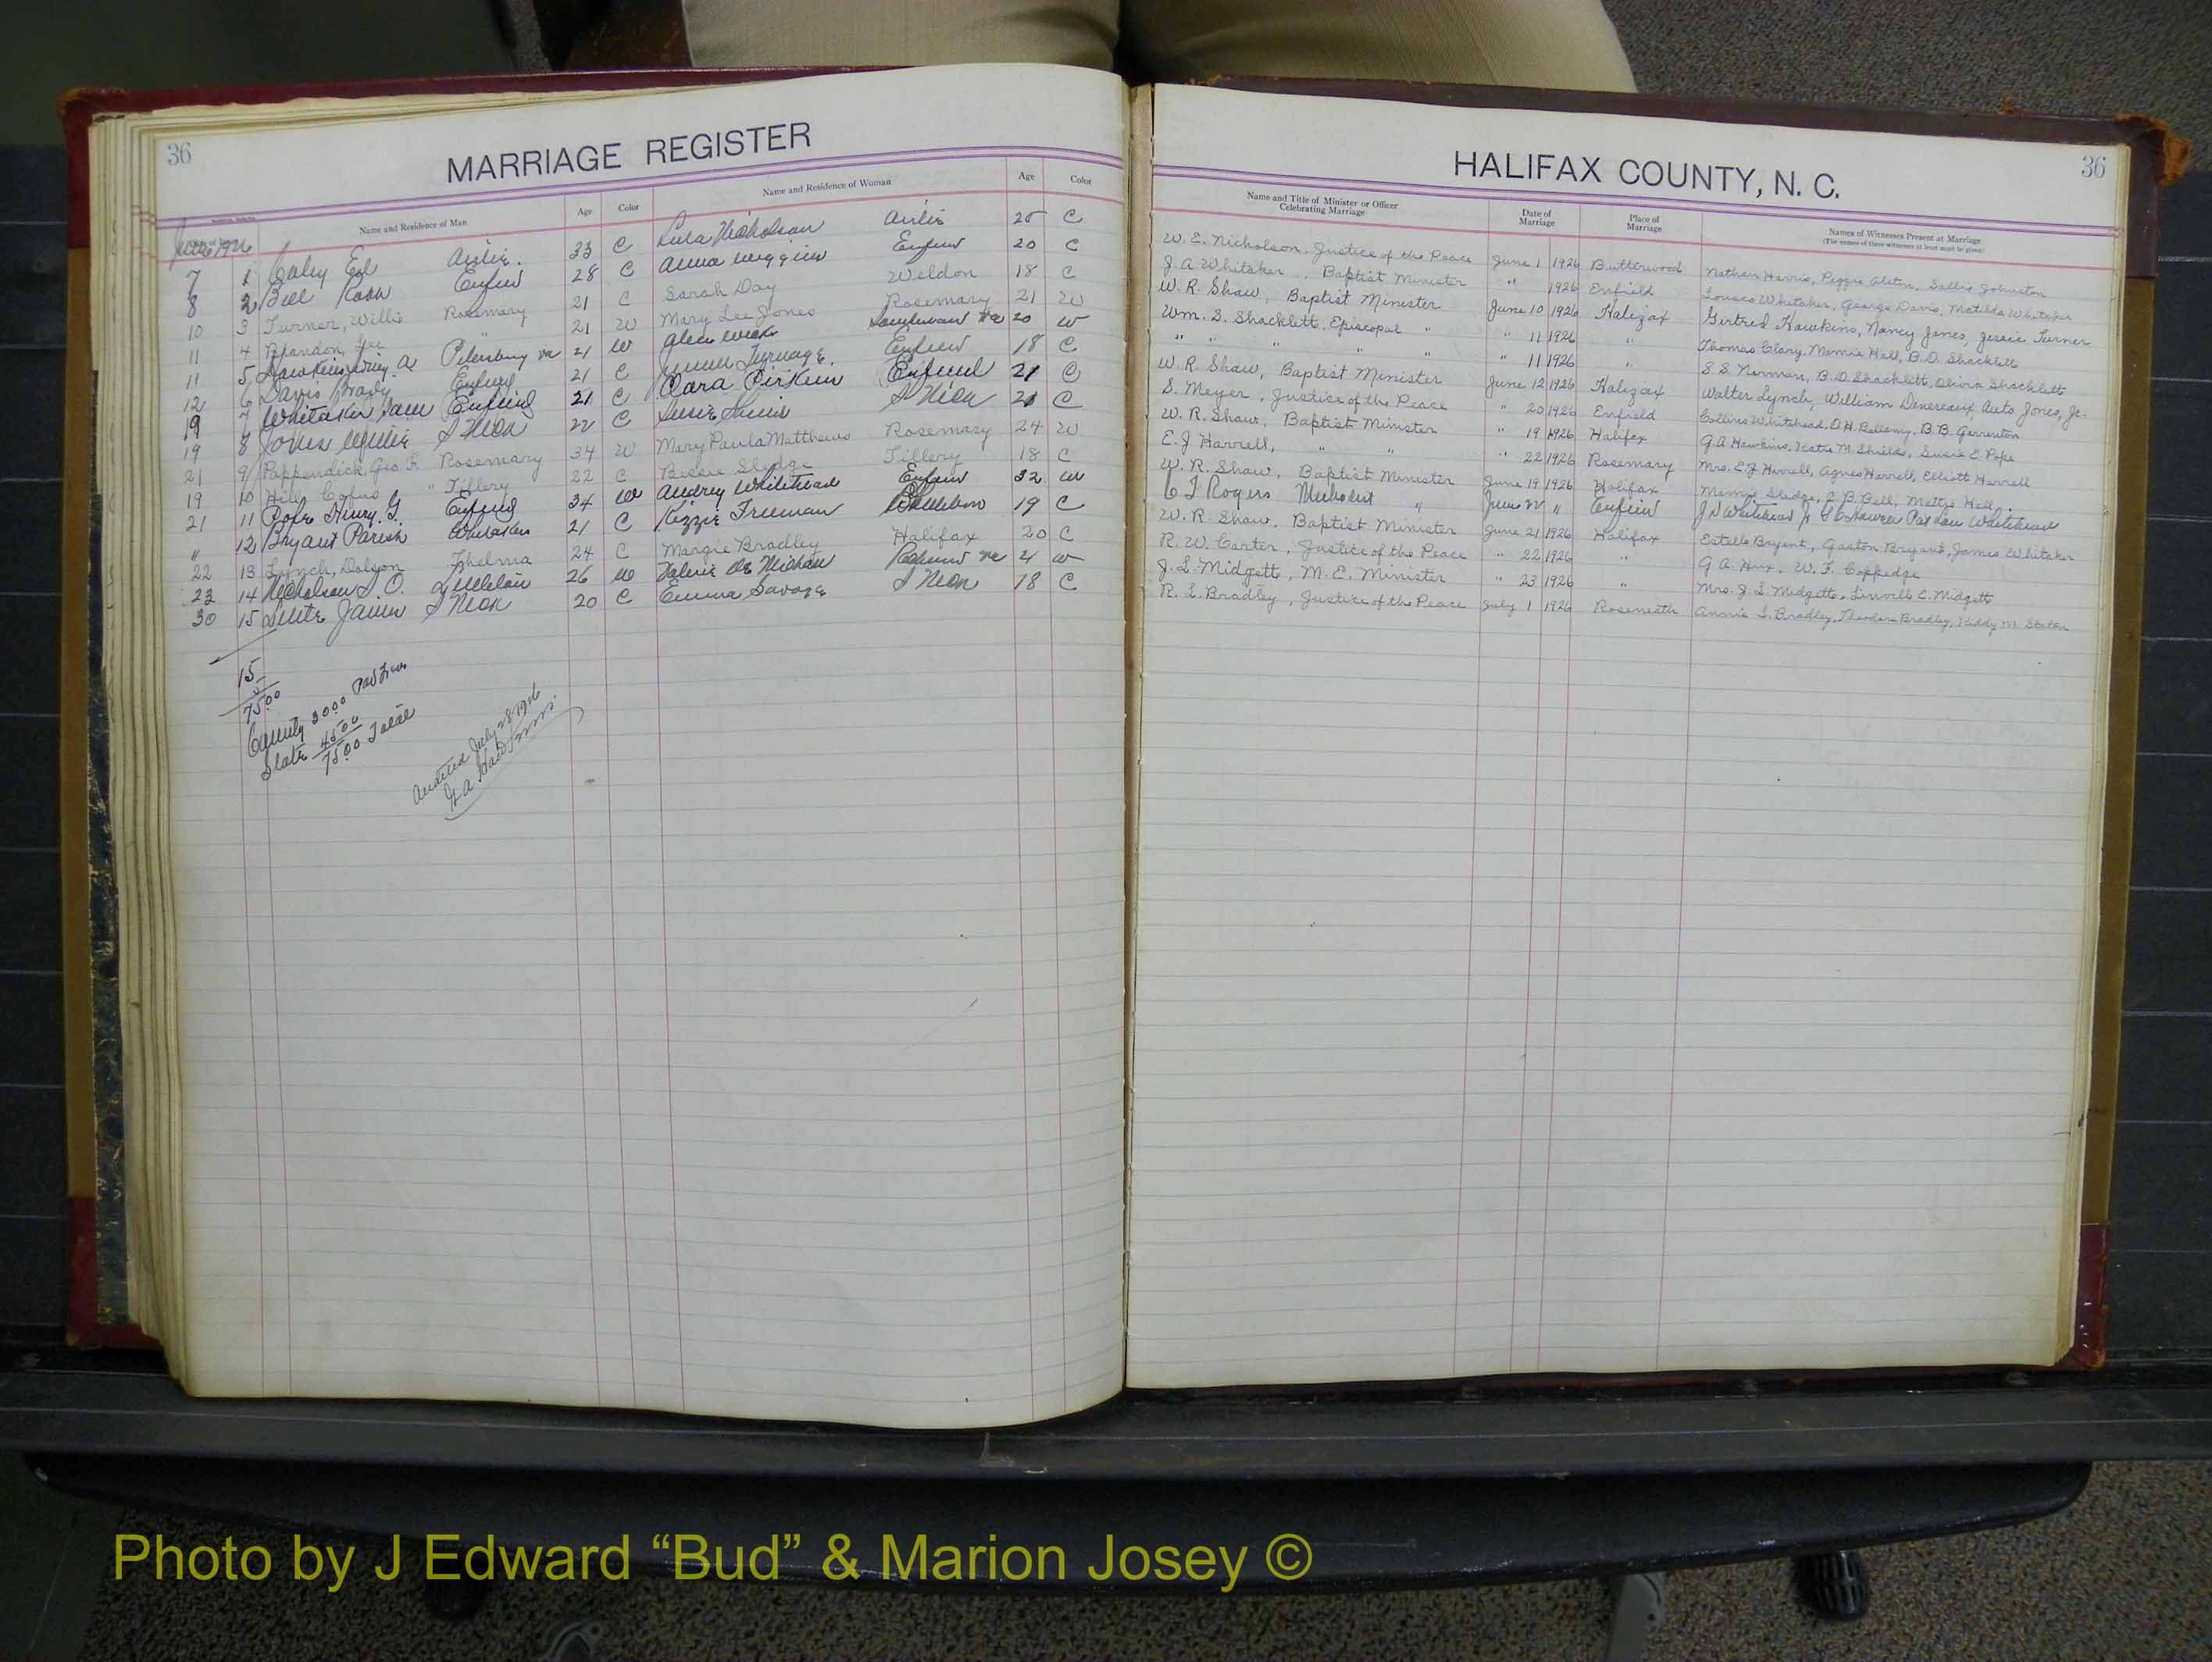 36
MARRIAGE REGISTER
Name and Residence of Man Age Color Name and Residence of Woman Age Color
June 1926
1 Ed Airlie. 33 C Lula Nicholson Airlie 25 C
7 2 Bell Enfield 28 C Anna Wiggins Enfield 20 C
8 3 Turner, Willie Rosemary 21 C Sarah Day Weldon 18 C
10 4 Brandon, Joe " 21 W Mary Lee Jones Rosemary 21 W
11 5 Hawkins A Petersburg Va 21 W Va 20 W
11 6 Davis Brady Enfield 21 C Enfield 18 C
12 7 Whitaker Sam Enfield 21 C Cara Enfield 21 C
19 8 Jones Willie S Neck 22 C Susie S Neck 21 C
19 9 Pappendick, Geo. F. Rosemary 34 W Mary Paula Matthews Rosemary 24 W
21 10 Hill, Tillery 22 C Bessie Sledge Tillery 18 C
19 11 Pope Henry G. Enfield 34 W Audrey Whitehead Enfield 32 W
21 12 Bryant Parish Whitakers 21 C Kizzie Freeman 19 C
" 13 Lynch, Dobson Thelma 24 C Margie Bradley Halifax 20 C
22 14 Nicholson Littleton 26 W Va 21 W
23 15 James S Neck 20 C Emma Savage S Neck 18 C
30
15
5
75.00
County 30.00 Pad
State 45.00
75.00 Total
Audited July 28 1926
HALIFAX COUNTY, N. C.
36
Name and Title of Minister or Officer Celebrating Marriage Date of Marriage Place of Marriage Names of Witnesses Present at Marriage
(The names of three witnesses at least must be given)
W. E. Nicholson, Justice of the Peace June 1 1926 Butterwood Nathan Harris, Peggie Alston, Sallie Johnston
J. A. Whitaker, Baptist Minister " 1926 Enfield Whitaker, George Davis, Matilda Whitaker
W. R. Shaw, Baptist Minister June 10 1926 Halifax Gertred Hawkins, Nancy Jones, Jessie Turner
Wm. S. Shacklett, Episcopal " " 11 1926 " Thomas Clary, Mamie Hall, B. D. Shacklett
" " " " " " 11 1926 " S. S. Norman, B. D. Shacklett, Olivia Shacklett
W. R. Shaw, Baptist Minister June 12 1926 Halifax Walter Lynch, William Devereaux, Auto Jones, Jr.
S. Meyer, Justice of the Peace " 20 1926 Enfield Collins Whitehead, D. H. Bellamy, B. B. Garrenton
W. R. Shaw, Baptist Minister " 19 1926 Halifax G. A. Hawkins, Katie M. Shields, Susie E. Pope
E. J Harrell, " " " 22 1926 Rosemary Mrs. E. J. Harrell, Agnes Harrell, Elliott Harrell
W. R. Shaw, Baptist Minister June 19 1926 Halifax Mamie Sledge, A. B. Bell, Mattie Hall.
C T Rogers Methodist " June 22 " Enfield J. N Whitehead Jr Whitehead
W. R. Shaw, Baptist Minister June 21 1926 Halifax Estelle Bryant, Gaston Bryant, James Whitaker
R. W. Carter, Justice of the Peace " 22 1926 " G. A. Hux, W. F. Coppedge
J. L. Midgett, M. E. Minister " 23 1926 " Mrs. J. L. Midgette, Linwell C. Midgett
R. L. Bradley, Justice of the Peace July 1 1926 Roseneath Annie L. Bradley, Theodore Bradley, Kiddy M. Staton
Photo by J Edward “Bud” & Marion Josey ©